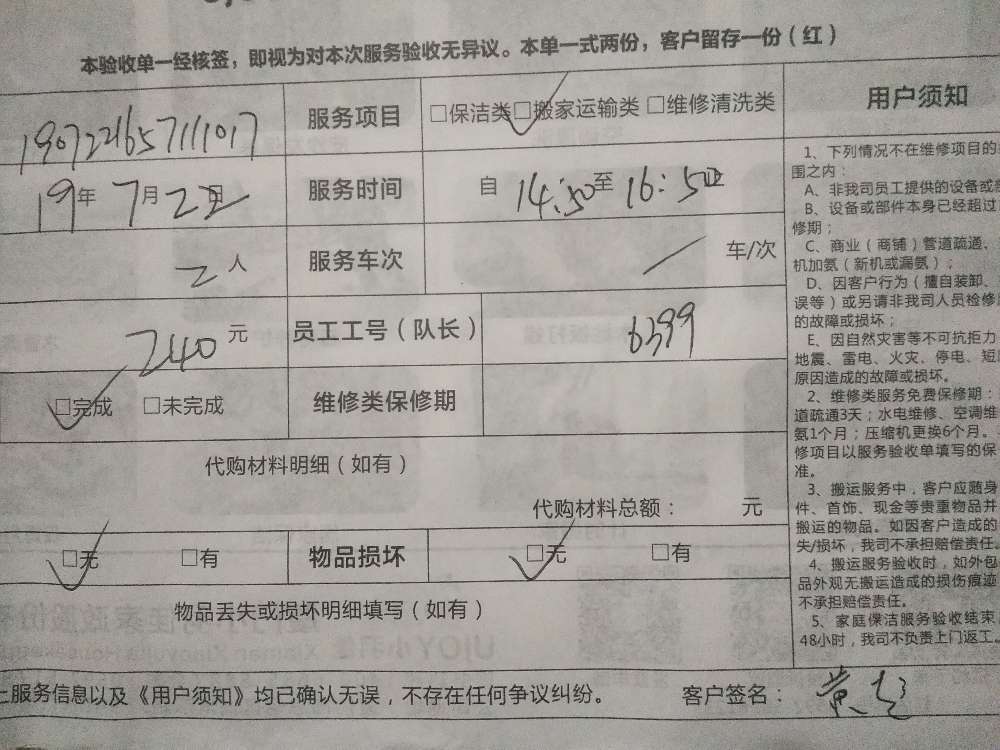 本验收单一经核签，即视为对本次服务验收无异议。本单一式两份，客户留存一份（红）
1907221657111017 服务项目 □保洁类 □搬家运输类 □维修清洗类
19年 7月22日 服务时间 自 14:50至 16:50止
2人 服务车次 / 车/次
240元 员工工号（队长） 6399
□完成 □未完成 维修类保修期
代购材料明细（如有）
代购材料总额： 元
□无 □有 物品损坏 □无 □有
物品丢失或损坏明细填写（如有）
服务信息以及《用户须知》均已确认无误，不存在任何争议纠纷。 客户签名：
用户须知
1、下列情况不在维修项目的
围之内：
A、非我司员工提供的设备或
B、设备或部件本身已经超过
修期；
C、商业（商铺）管道疏通、
机加氨（新机或漏氨）；
D、因客户行为（擅自装卸、
误等）或另请非我司人员检修
的故障或损坏；
E、因自然灾害等不可抗拒力
地震、雷电、火灾、停电、短
原因造成的故障或损坏。
2、维修类服务免费保修期：
道疏通3天；水电维修、空调维
氨1个月；压缩机更换6个月。
修项目以服务验收单填写的保
准。
3、搬运服务中，客户应随身
件、首饰、现金等贵重物品并
搬运的物品。如因客户造成的
失/损坏，我司不承担赔偿责任。
4、搬运服务验收时，如外包
品外观无搬运造成的损伤痕迹
不承担赔偿责任。
5、家庭保洁服务验收结束
48小时，我司不负责上门返工。